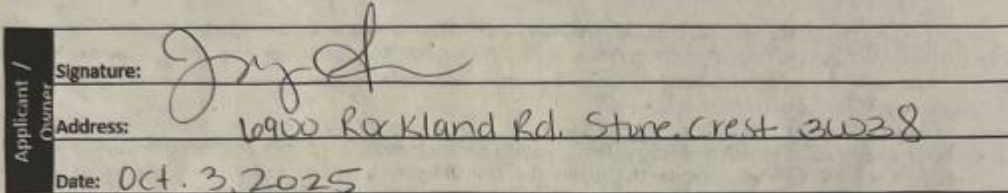 Applicant / Owner
Signature:
Address: 6900 Rockland Rd. Stonecrest 30038
Date: Oct. 3, 2025